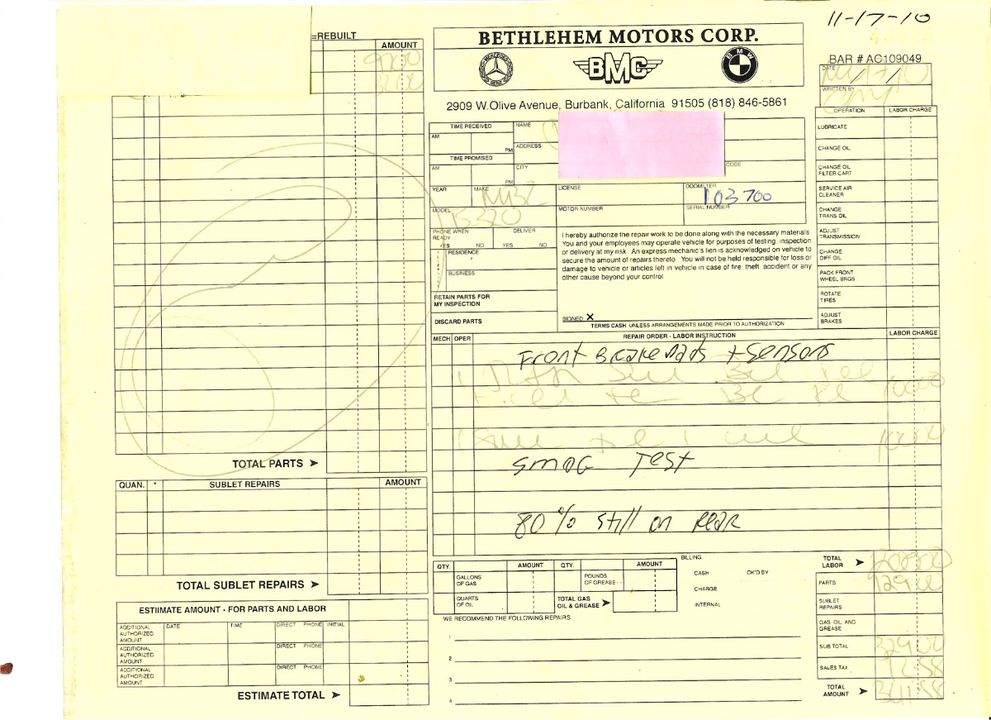 11-17-10
=REBUILT
AMOUNT
BETHLEHEM MOTORS CORP.
BMC
BMW
BAR # AC109049
2909 W.Olive Avenue, Burbank, California 91505 (818) 846-5861
DATE
WRITTEN BY
OPERATION LABOR CHARGE
TIME RECEIVED
AM PM
NAME
ADDRESS
TIME PROMISED
AM PM
CITY
CODE
YEAR MAKE LICENSE ODOMETER
103700
MODEL MOTOR NUMBER SERIAL NUMBER
LUBRICATE
CHANGE OIL
CHANGE OIL
FILTER CART
SERVICE AIR
CLEANER
CHANGE
TRANS OIL
ADJUST
TRANSMISSION
CHANGE
DIFF OIL
PACK FRONT
WHEEL BRGS
ROTATE
TIRES
ADJUST
BRAKES
PHONE WHEN
READY DELIVER
YES NO YES NO
RESIDENCE
BUSINESS
RETAIN PARTS FOR
MY INSPECTION
DISCARD PARTS
I hereby authorize the repair work to be done along with the necessary materials
You and your employees may operate vehicle for purposes of testing, inspection
or delivery at my risk An express mechanic's lien is acknowledged on vehicle to
secure the amount of repairs thereto You will not be held responsible for loss or
damage to vehicle or articles left in vehicle in case of fire, theft, accident or any
other cause beyond your control
SIGNED X
TERMS CASH UNLESS ARRANGEMENTS MADE PRIOR TO AUTHORIZATION
MECH OPER REPAIR ORDER - LABOR INSTRUCTION LABOR CHARGE
Front Brake Pads + Sensors
Smog Test
80% still on rear
TOTAL PARTS
QUAN. SUBLET REPAIRS AMOUNT
TOTAL SUBLET REPAIRS
ESTIMATE AMOUNT - FOR PARTS AND LABOR
ADDITIONAL
AUTHORIZED
AMOUNT
DATE TIME DIRECT PHONE INITIAL
ADDITIONAL
AUTHORIZED
AMOUNT
DIRECT PHONE
ADDITIONAL
AUTHORIZED
AMOUNT
DIRECT PHONE
ESTIMATE TOTAL
QTY. AMOUNT QTY. AMOUNT
GALLONS
OF GAS
POUNDS
OF GREASE
QUARTS
OF OIL
TOTAL GAS
OIL & GREASE
BILLING
CASH OK'D BY
CHARGE
INTERNAL
WE RECOMMEND THE FOLLOWING REPAIRS
1
2
3
4
TOTAL
LABOR
PARTS
SUBLET
REPAIRS
GAS, OIL AND
GREASE
SUB TOTAL
SALES TAX
TOTAL
AMOUNT